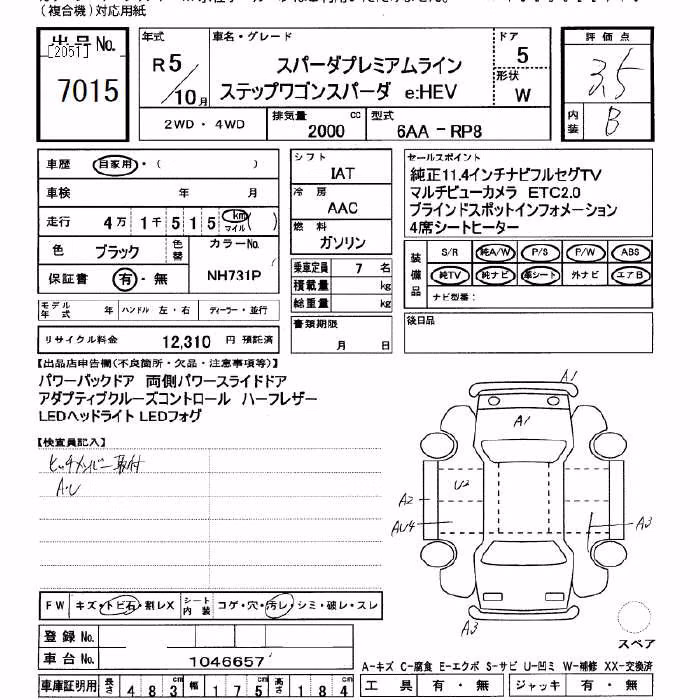 (複合機)対応用紙
出品No.
[2051]
7015
年式
R5
10月
車名・グレード
スパーダプレミアムライン
ステップワゴンスパーダ e:HEV
ドア
5
形状
W
2WD・4WD
排気量
2000
cc
型式
6AA - RP8
評価点
3.5
内装
B
車歴
自家用・( )
車検
年 月
走行
4万1千515
km
マイル
( )
色
ブラック
色替
カラーNo.
NH731P
保証書
有・無
モデル年式
年
ハンドル 左・右
ディーラー・並行
リサイクル料金
12,310 円 預託済
シフト
IAT
冷房
AAC
燃料
ガソリン
乗車定員
7 名
積載量
kg
総重量
kg
書類期限
月 日
セールスポイント
純正11.4インチナビフルセグTV
マルチビューカメラ ETC2.0
ブラインドスポットインフォメーション
4席シートヒーター
装備品
S/R 純A/W P/S P/W ABS
純TV 純ナビ 革シート 外ナビ エアB
ナビ型番:
後日品
【出品店申告欄(不良箇所・欠品・注意事項等)】
パワーバックドア 両側パワースライドドア
アダプティブクルーズコントロール ハーフレザー
LEDヘッドライト LEDフォグ
【検査員記入】
ヒッチメンバー取付
A・U
FW
キズ・トビ石・割レX
シート内装
コゲ・穴・汚レ・シミ・破レ・スレ
登録No.
車台No.
1046657
車庫証明用
長さ
483
cm
幅
175
cm
高さ
184
cm
A1
A1
U2
A2
AU4
A3
A3
スペア
A-キズ C-腐食 E-エクボ S-サビ U-凹ミ W-補修 XX-交換済
工具
有・無
ジャッキ
有・無